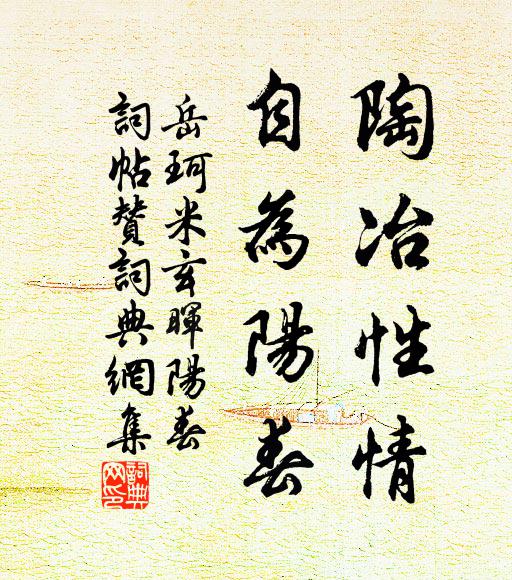 陶冶性情
自為陽春
岳珂米玄暉陽春
詞帖贊詞典網集
詞典网印